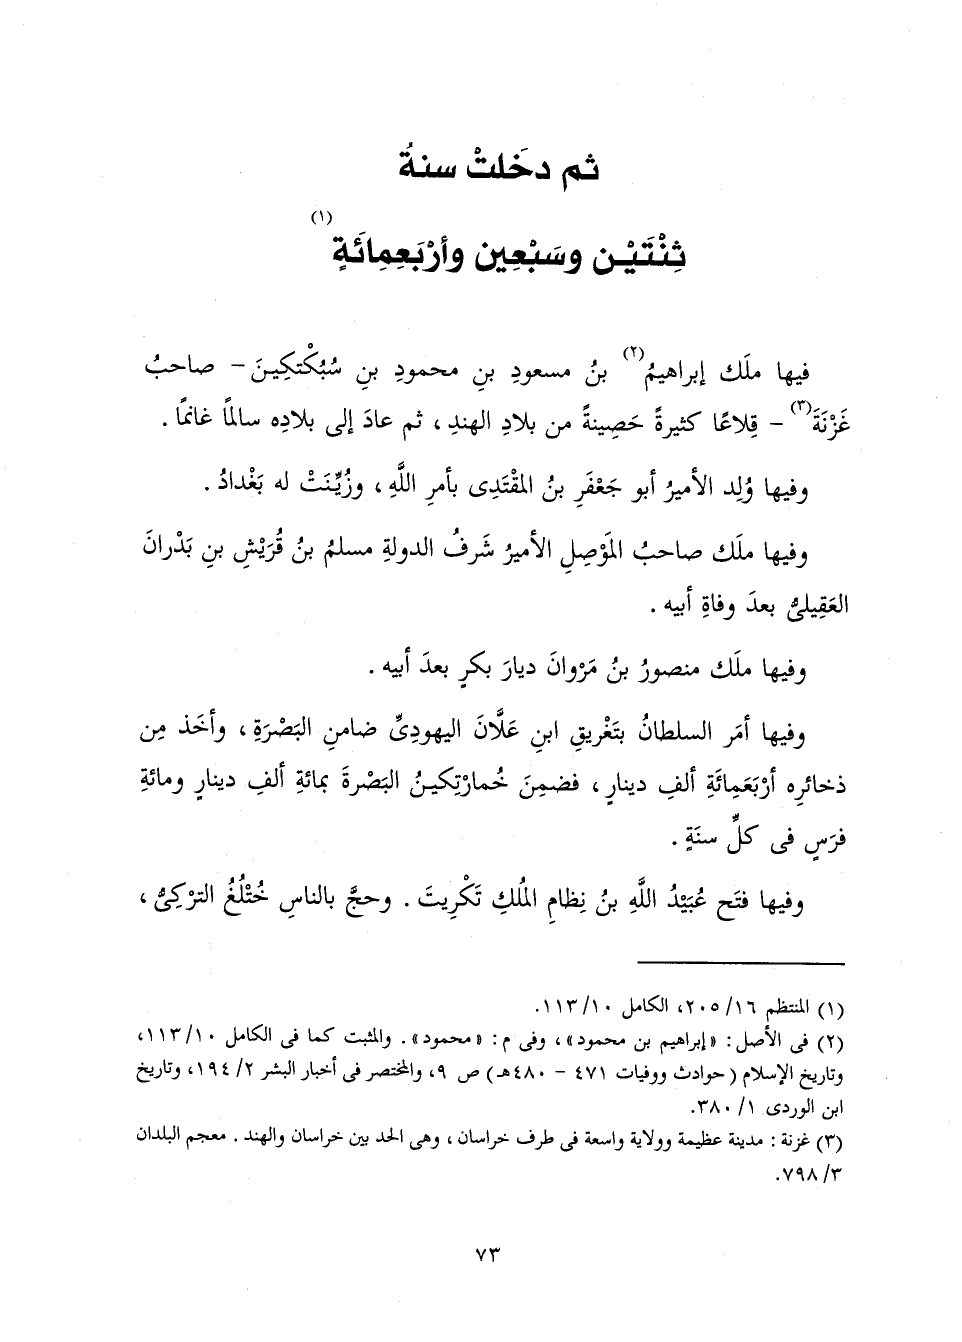 ثم دخَلتْ سنةُ
ثِنْتَيْن وسَبْعِين وأرْبَعِمِائَةٍ(١)
فيها ملَك إبراهيمُ(٢) بنُ مسعودِ بنِ محمودِ بنِ سُبُكْتكِينَ - صاحبُ
غَزْنَةَ(٣) - قِلاعًا كثيرةً حَصِينةً من بلادِ الهندِ ، ثم عادَ إلى بلادِه سالمًا غانمًا .
وفيها وُلِد الأميرُ أبو جَعْفَرِ بنُ المقْتَدِى بأمرِ اللَّهِ ، وزُيِّنَتْ له بَغْدادُ .
وفيها ملَك صاحبُ المَوْصِلِ الأميرُ شَرفُ الدولةِ مسلمُ بنُ قُرَيْشِ بنِ بَدْرانَ
العَقِيلىُّ بعدَ وفاةِ أبيه .
وفيها ملَك منصورُ بنُ مَرْوانَ ديارَ بكرٍ بعدَ أبيه .
وفيها أمَر السلطانُ بتَغْريقِ ابنِ عَلَّانَ اليهودِىِّ ضامنِ البَصْرَةِ ، وأخَذ مِن
ذخائرِه أرْبَعَمِائَةِ ألفِ دينارٍ ، فضمِنَ خُمارْتِكينُ البَصْرةَ بمائةِ ألفِ دينارٍ ومائةِ
فرَسٍ فى كلِّ سنَةٍ .
وفيها فتَح عُبَيْدُ اللَّهِ بنُ نِظامِ المُلكِ تَكْرِيتَ . وحجَّ بالناسِ خُتْلُغُ التركىُّ ،
(١) المنتظم ١٦/ ٢٠٥، الكامل ١٠/ ١١٣.
(٢) فى الأصل : «إبراهيم بن محمود» ، وفى م : «محمود» . والمثبت كما فى الكامل ١٠/ ١١٣،
وتاريخ الإسلام (حوادث ووفيات ٤٧١ - ٤٨٠هـ) ص ٩، والمختصر فى أخبار البشر ٢/ ١٩٤، وتاريخ
ابن الوردى ١/ ٣٨٠.
(٣) غزنة : مدينة عظيمة وولاية واسعة فى طرف خراسان ، وهى الحد بين خراسان والهند . معجم البلدان
٣/ ٧٩٨.
٧٣